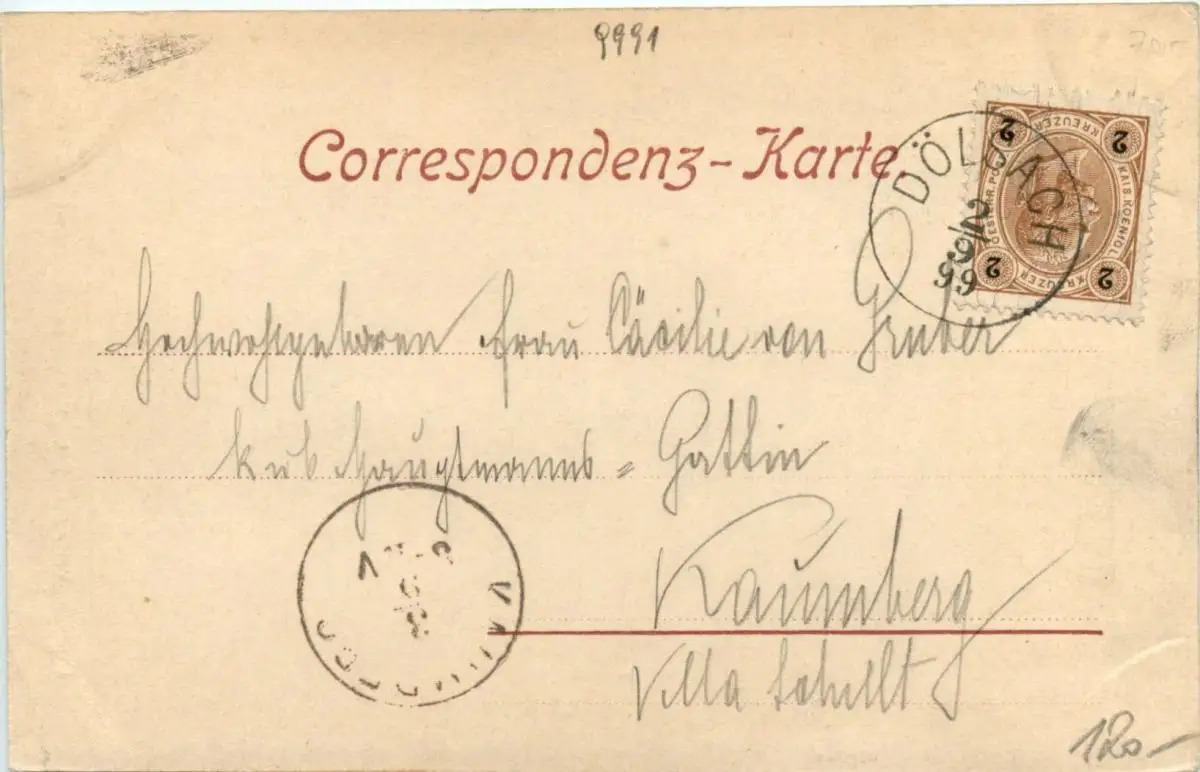 9991
Correspondenz-Karte.
DÖLSACH
2/9
99
2 KREUZER 2
KAIS. KOENIGL. OESTERR. POST
2 KREUZER 2
Hochwohlgeboren Frau Cäcilie von Gruber
k u k Hauptmanns = Gattin
Kaumberg
KAUMBERG
Villa
120-